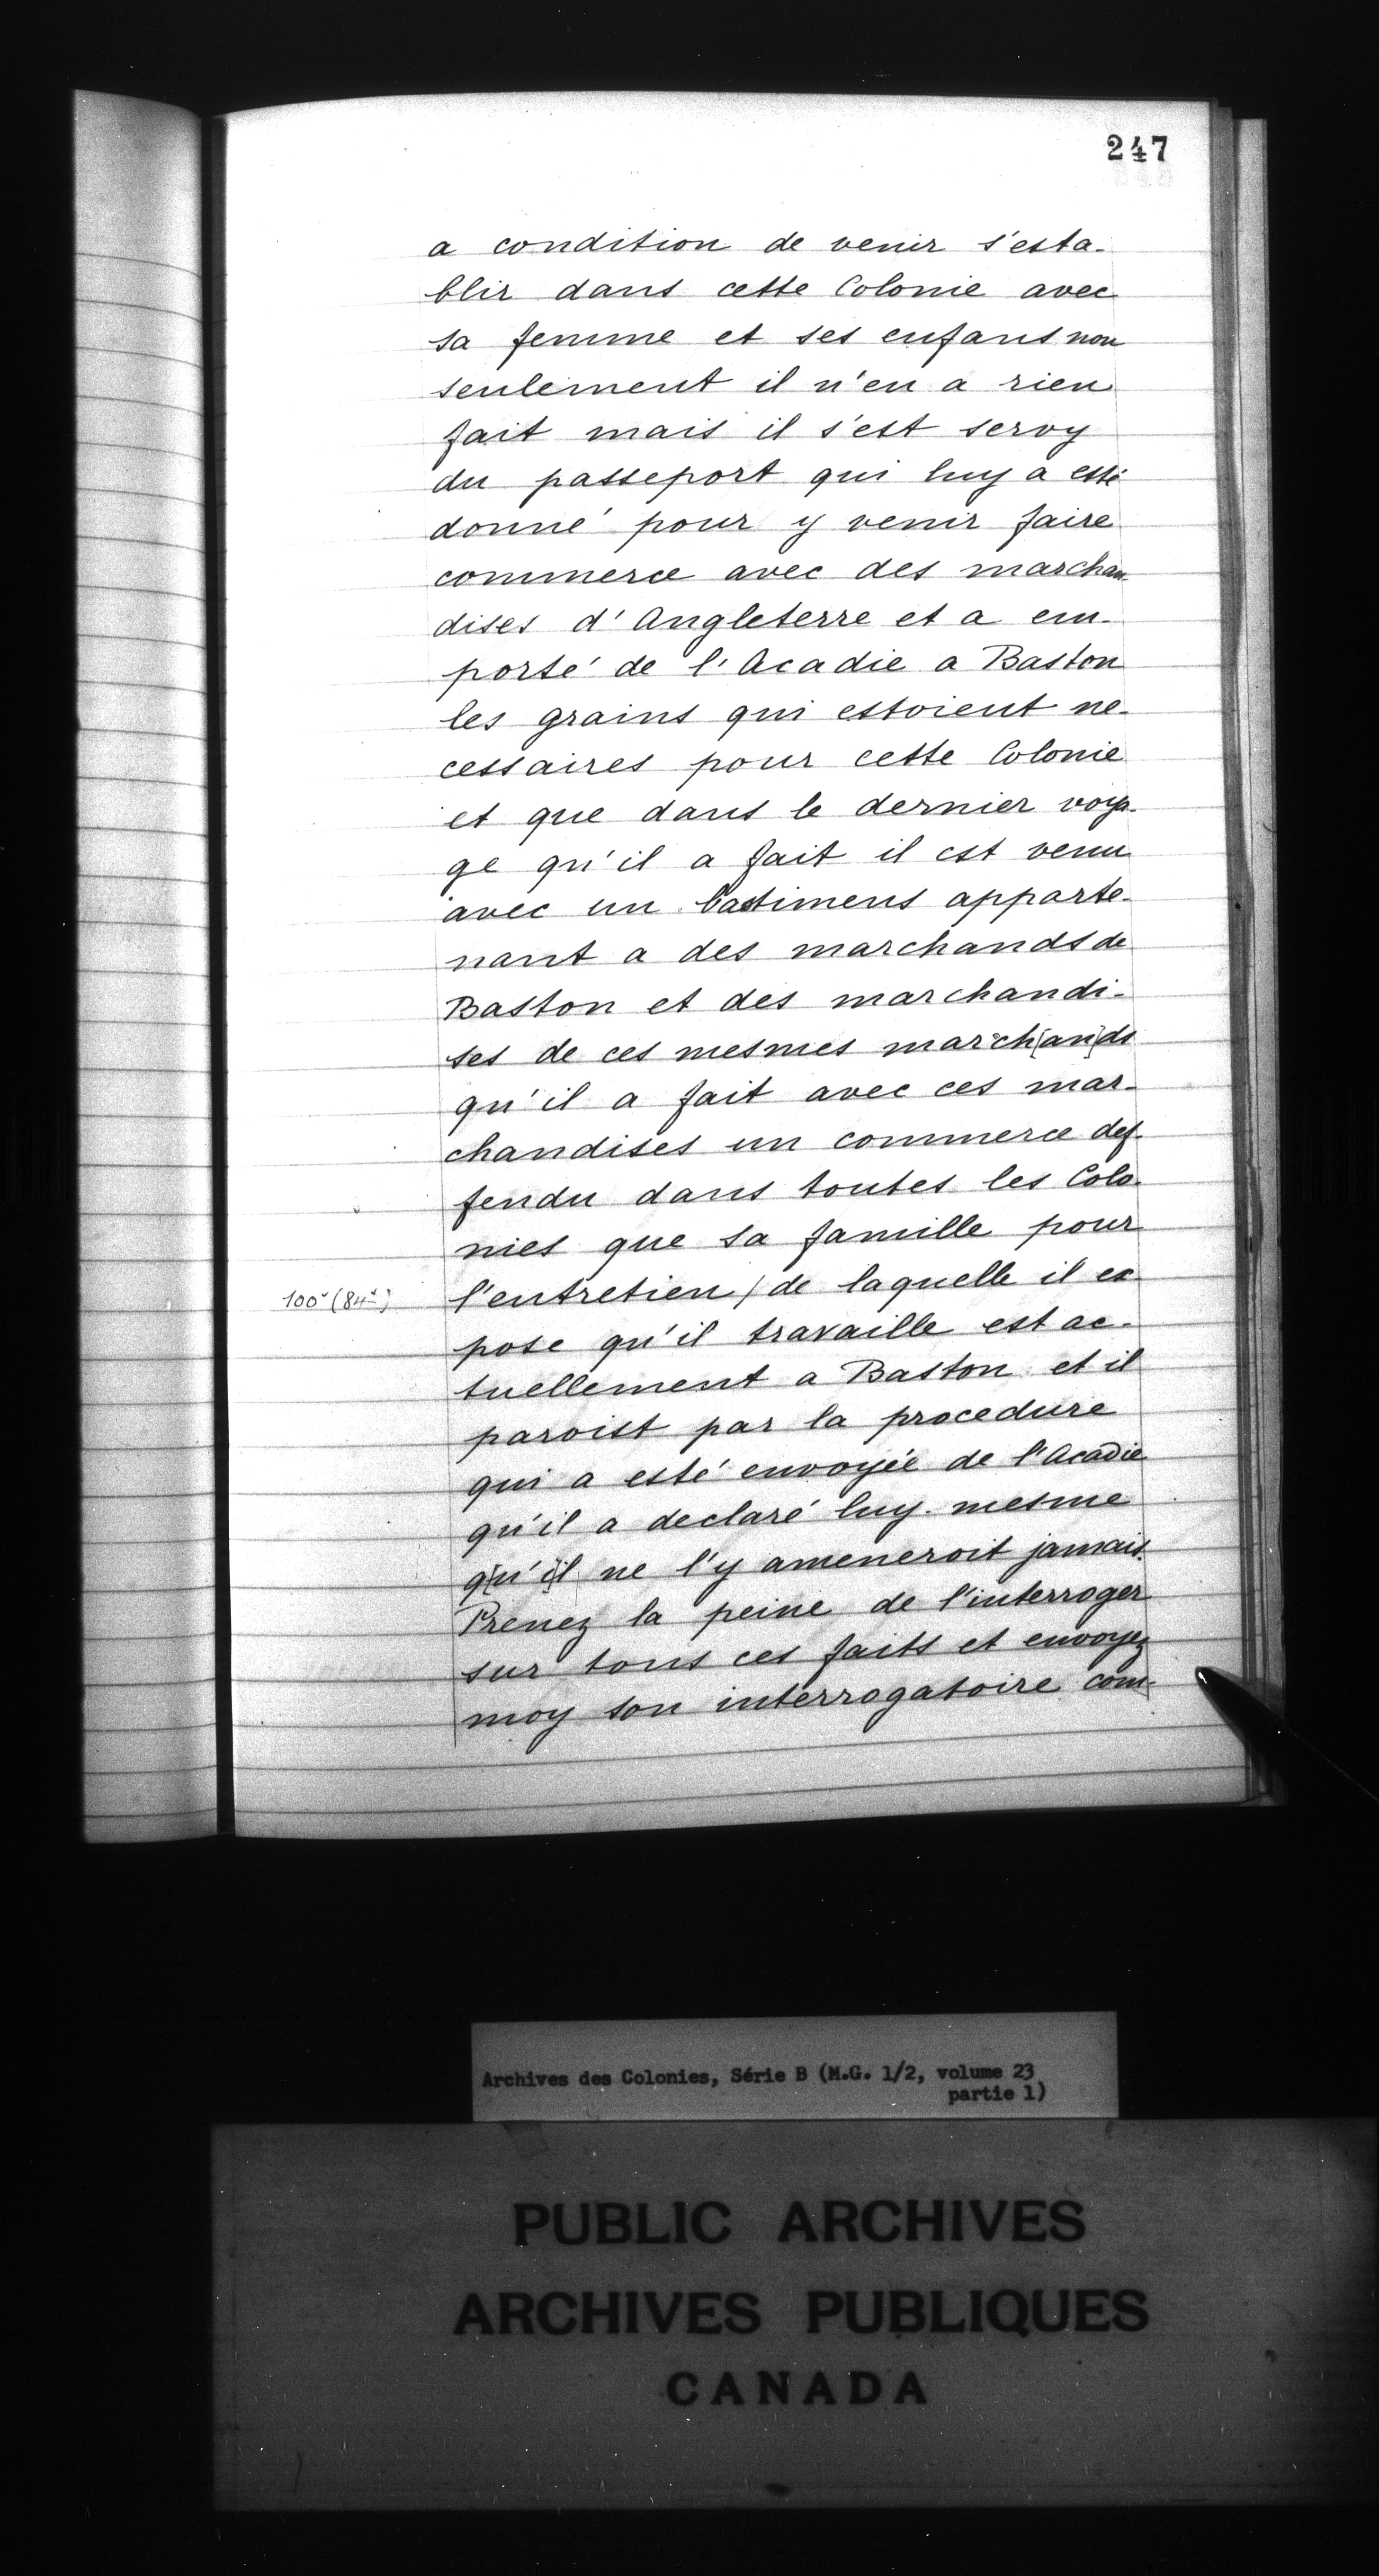 247
a condition de venir s'esta-
blir dans cette Colonie avec
sa femme et ses enfans non
seulement il n'en a rien
fait mais il s'est servy
du passeport qui luy a esté
donné pour y venir faire
commerce avec des marchan
dises d'Angleterre et a em-
porté de l'Acadie a Baston
les grains qui estoient ne-
cessaires pour cette Colonie
et que dans le dernier voya-
ge qu'il a fait il est venu
avec un bastimens apparte-
nant a des marchands de
Baston et des marchandi-
ses de ces mesmes march[an]ds
qu'il a fait avec ces mar-
chandises un commerce def-
fendu dans toutes les Colo-
nies que sa famille pour
100v (84v) l'entretien / de laquelle il ex-
pose qu'il travaille est ac-
tuellement a Baston et il
paroist par la procedure
qui a esté envoyée de l'Acadie
qu'il a declaré luy-mesme
q[u'i]l ne l'y ameneroit jamais.
Prenez la peine de l'interroger
sur tous ces faits et envoyez
moy son interrogatoire com-
Archives des Colonies, Série B (M.G. 1/2, volume 23
partie 1)
PUBLIC ARCHIVES
ARCHIVES PUBLIQUES
CANADA